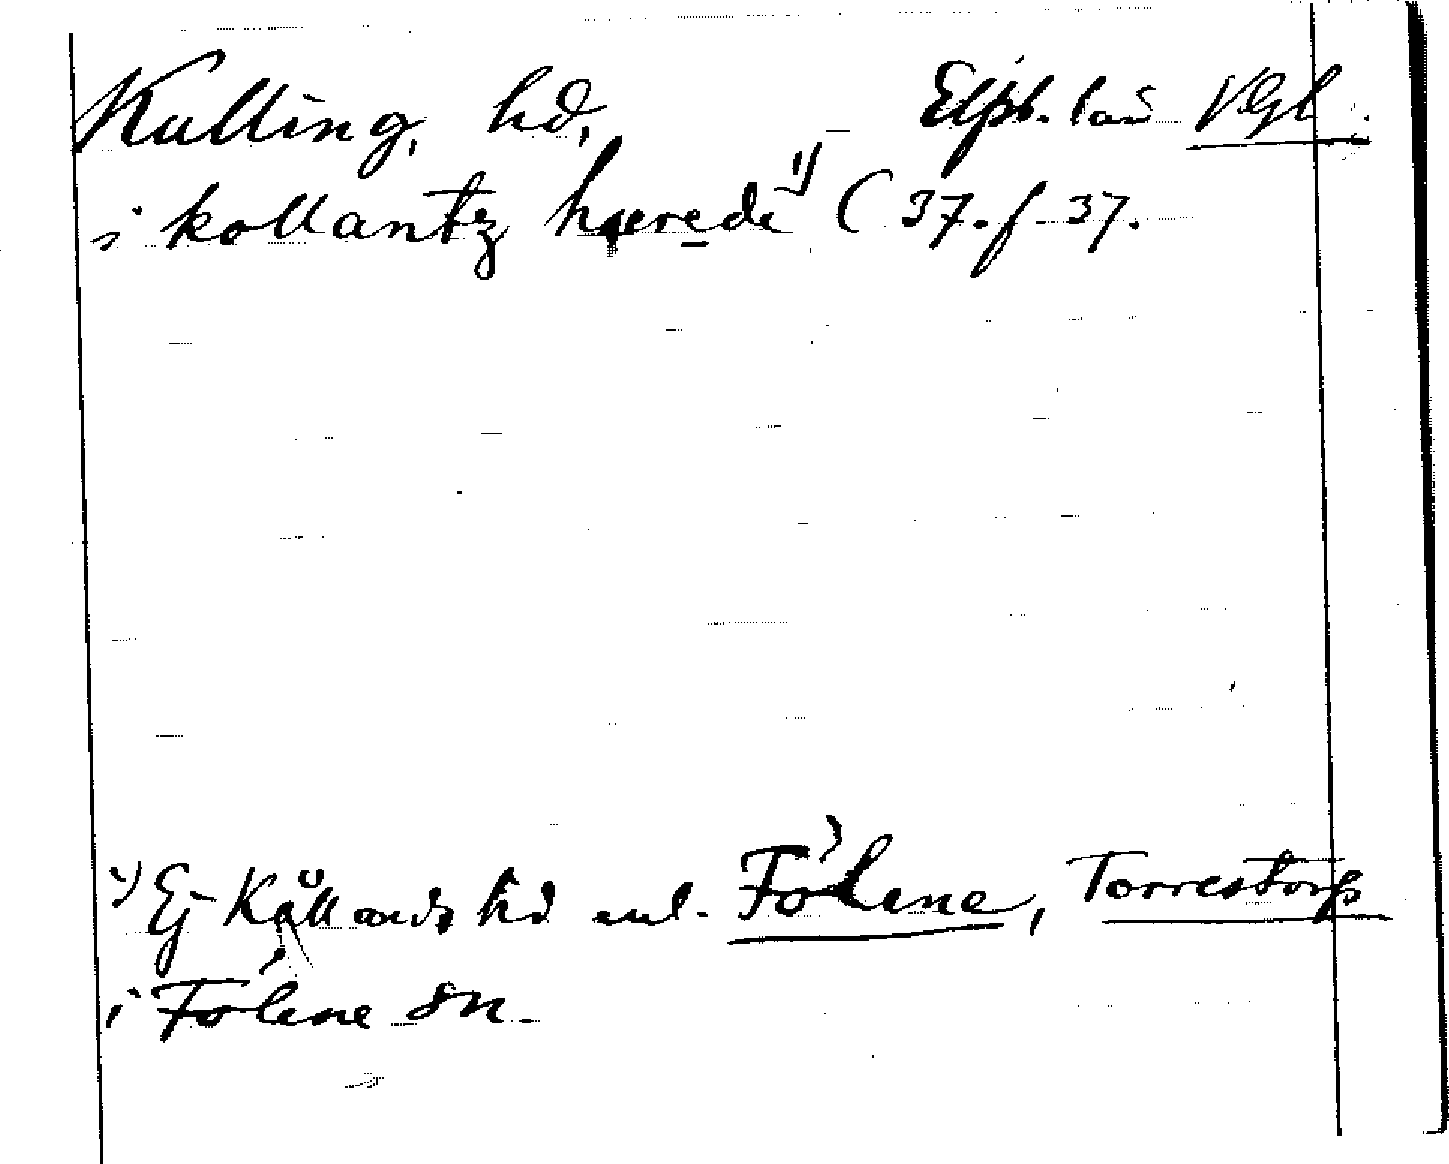 Kulling, hd, Elfsb. län Vgl.
i kollantz hærede 1) ( 37. f. 37.
1) Ej Kållands hd enl. Fölene, Torrestorp
i Fölene sn.